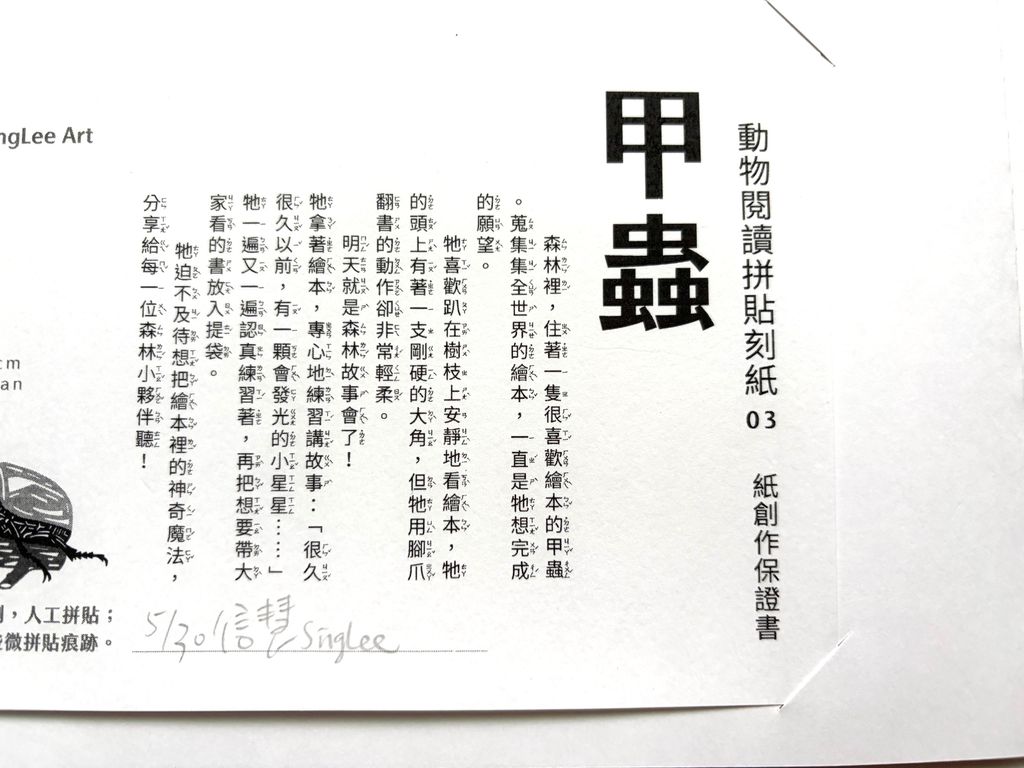 動物閱讀拼貼刻紙 03 紙創作保證書
甲蟲
森林裡，住著一隻很喜歡繪本的甲蟲
。蒐集集全世界的繪本，一直是牠想完成
的願望。
牠喜歡趴在樹枝上安靜地看繪本，牠
的頭上有著一支剛硬的大角，但牠用腳爪
翻書的動作卻非常輕柔。
明天就是森林故事會了！
牠拿著繪本，專心地練習講故事：「很久
很久以前，有一顆會發光的小星星……」
牠一遍又一遍認真練習著，再把想要帶大
家看的書放入提袋。
牠迫不及待想把繪本裡的神奇魔法，
分享給每一位森林小夥伴聽！
ngLee Art
cm
an
，人工拼貼；
微拼貼痕跡。
5/30 信慧 SingLee